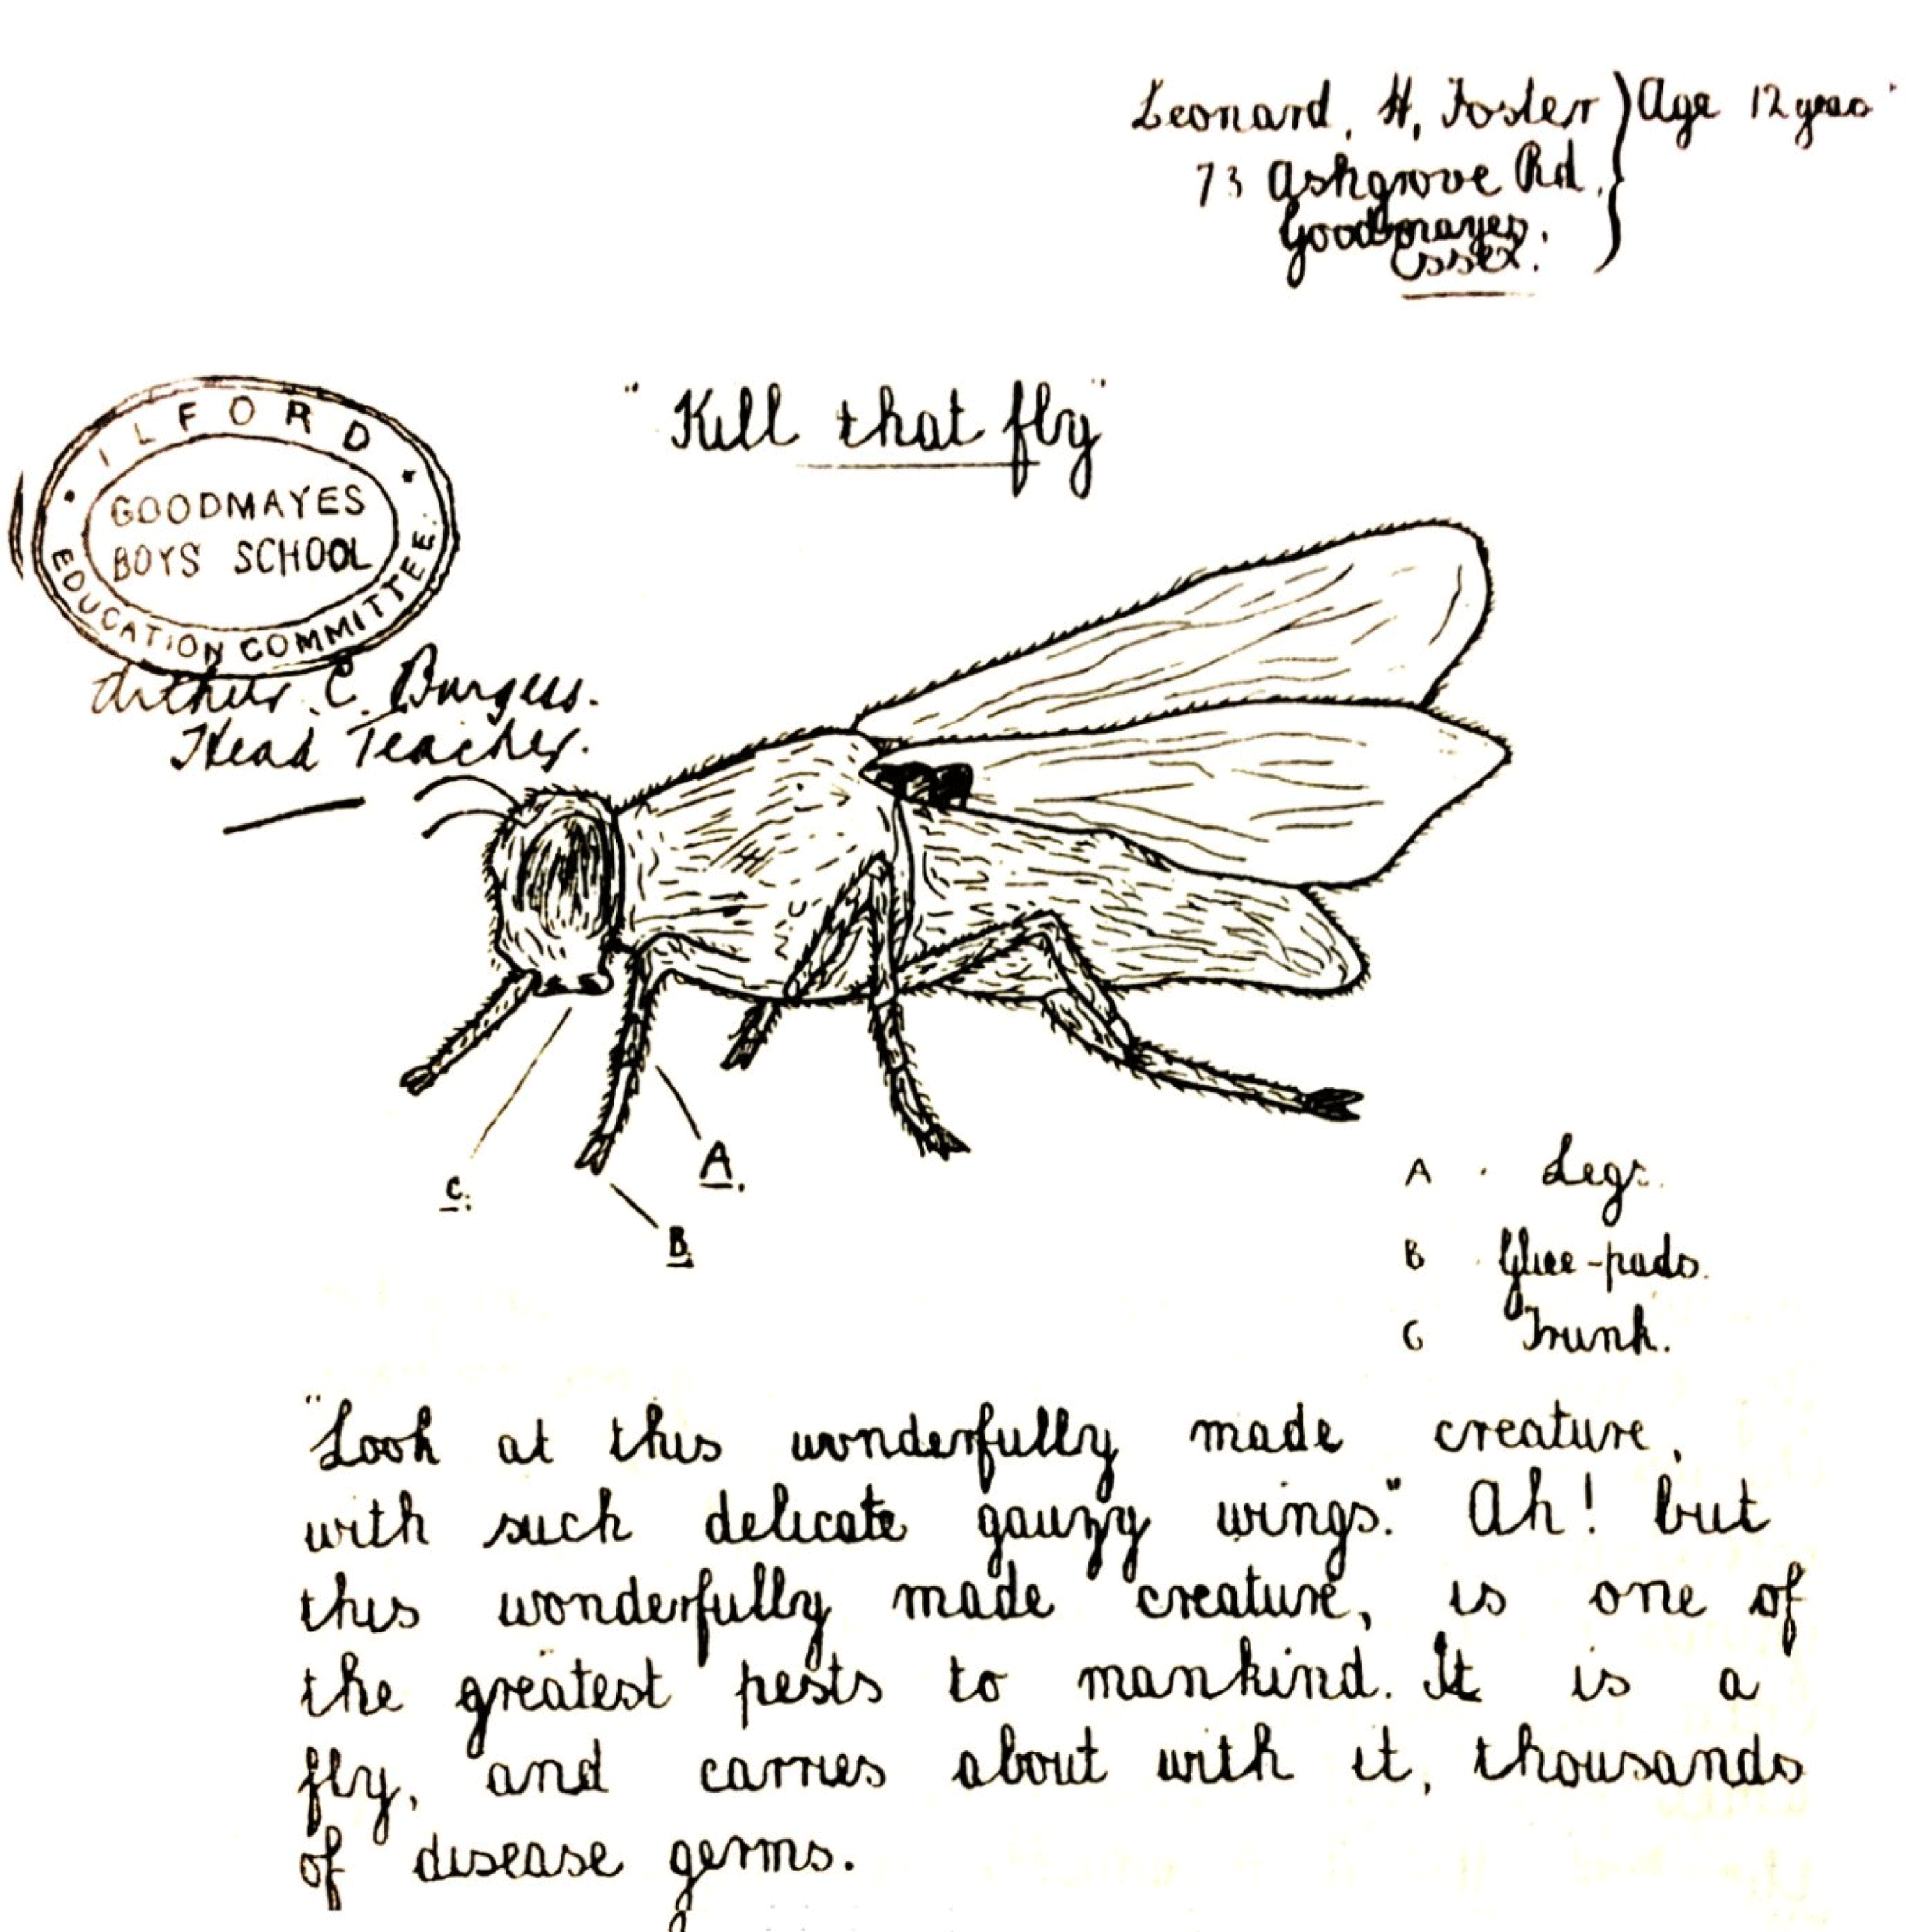 Leonard. H. Foster } Age 12 years
73 Ashgrove Rd.
Goodmayes.
Essex.
"Kill that fly"
ILFORD
GOODMAYES
BOYS SCHOOL
EDUCATION COMMITTEE
Arthur. C. Burgess.
Head Teacher.
C.
A.
B.
A . Legs.
B . Glue-pads.
C Trunk.
"Look at this wonderfully made creature,
with such delicate gauzy wings." Ah! but
this wonderfully made creature, is one of
the greatest pests to mankind. It is a
fly, and carries about with it, thousands
of disease germs.